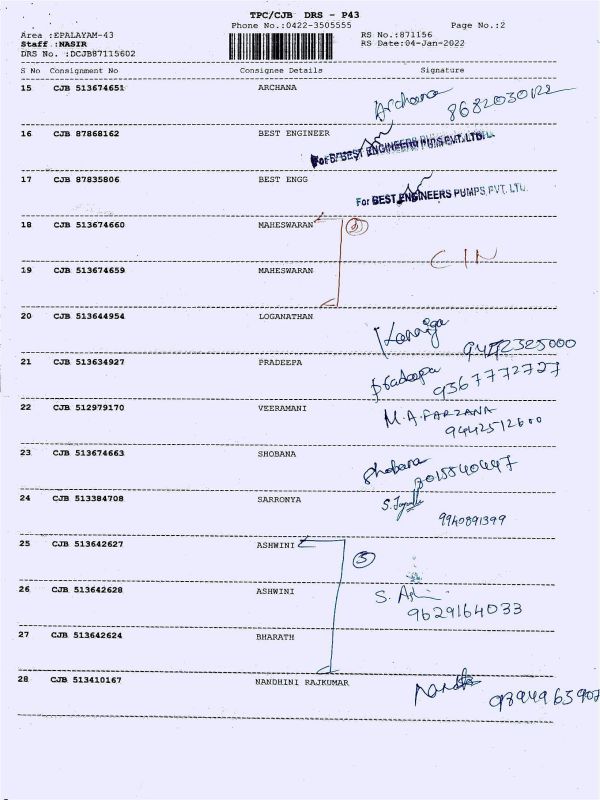 TPC/CJB DRS - P43
Phone No.:0422-3505555 Page No.:2
Area :EPALAYAM-43 RS No.:871156
Staff :NASIR RS Date:04-Jan-2022
DRS No. :DCJB87115602
S No Consignment No Consignee Details Signature
15 CJB 513674651 ARCHANA Archana
16 CJB 87868162 BEST ENGINEER
17 CJB 87835806 BEST ENGG For BEST ENGINEERS PUMPS PVT. LTD.
18 CJB 513674660 MAHESWARAN
CIN
19 CJB 513674659 MAHESWARAN
20 CJB 513644954 LOGANATHAN
21 CJB 513634927 PRADEEPA Pradeepa
9367772727
22 CJB 512979170 VEERAMANI M.A.FARZANA
9442512600
23 CJB 513674663 SHOBANA Shobana
24 CJB 513384708 SARRONYA
9940891399
25 CJB 513642627 ASHWINI
26 CJB 513642628 ASHWINI
9629164033
27 CJB 513642624 BHARATH
28 CJB 513410167 NANDHINI RAJKUMAR